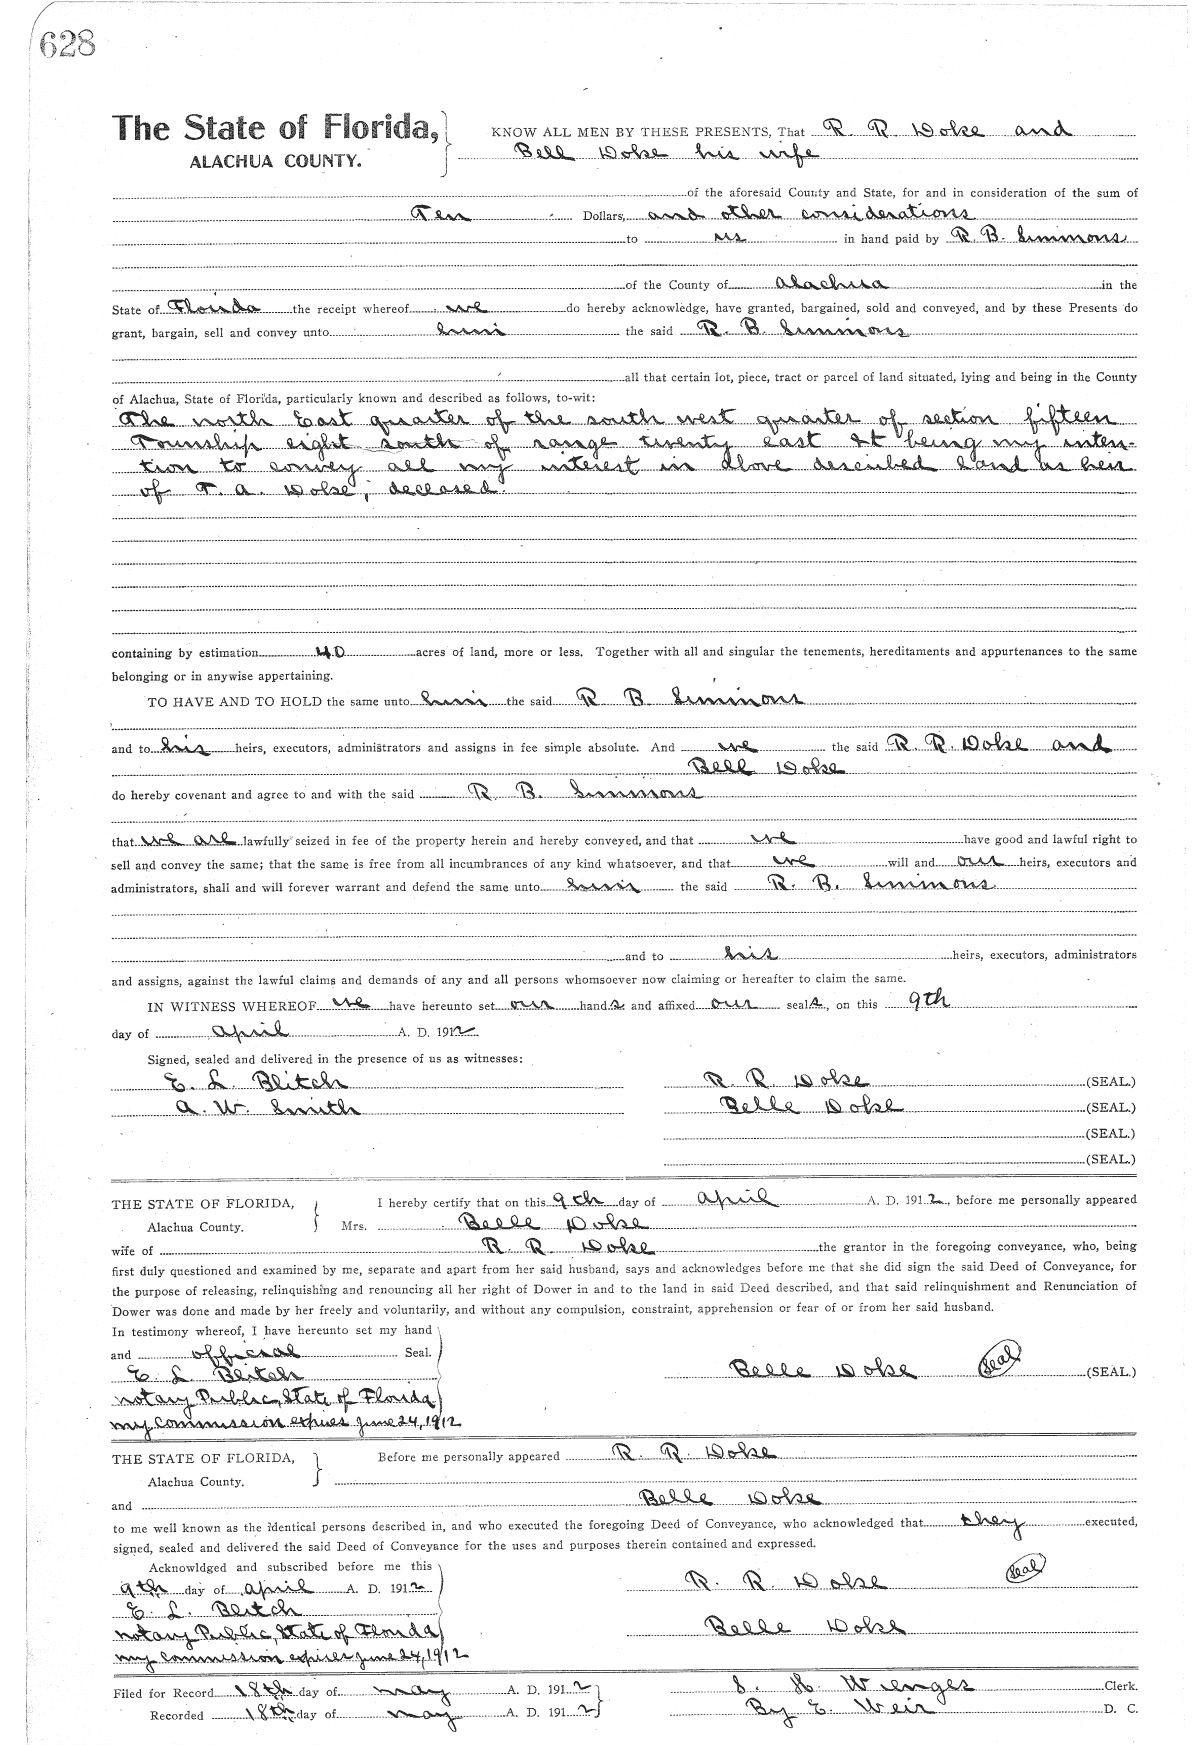 628
The State of Florida,
ALACHUA COUNTY.
KNOW ALL MEN BY THESE PRESENTS, That R. R. Doke and
Bell Doke his wife
of the aforesaid County and State, for and in consideration of the sum of
Ten Dollars, and other considerations
to us in hand paid by R. B. Simmons
of the County of Alachua in the
State of Florida the receipt whereof we do hereby acknowledge, have granted, bargained, sold and conveyed, and by these Presents do
grant, bargain, sell and convey unto him the said R. B. Simmons
all that certain lot, piece, tract or parcel of land situated, lying and being in the County
of Alachua, State of Florida, particularly known and described as follows, to-wit:
The north East quarter of the south west quarter of section fifteen
Township eight south of range twenty east It being my inten-
tion to convey all my interest in above described land as heir
of T. A. Doke, deceased.
containing by estimation 40 acres of land, more or less. Together with all and singular the tenements, hereditaments and appurtenances to the same
belonging or in anywise appertaining.
TO HAVE AND TO HOLD the same unto him the said R B. Simmons
and to his heirs, executors, administrators and assigns in fee simple absolute. And we the said R. R. Doke and
Bell Doke
do hereby covenant and agree to and with the said R. B. Simmons
that we are lawfully seized in fee of the property herein and hereby conveyed, and that we have good and lawful right to
sell and convey the same; that the same is free from all incumbrances of any kind whatsoever, and that we will and our heirs, executors and
administrators, shall and will forever warrant and defend the same unto him the said R. B. Simmons
and to his heirs, executors, administrators
and assigns, against the lawful claims and demands of any and all persons whomsoever now claiming or hereafter to claim the same.
IN WITNESS WHEREOF we have hereunto set our hands and affixed our seals, on this 9th
day of April A. D. 1912
Signed, sealed and delivered in the presence of us as witnesses:
E. L. Blitch R. R. Doke (SEAL.)
A. W. Smith Belle Doke (SEAL.)
(SEAL.)
(SEAL.)
THE STATE OF FLORIDA, I hereby certify that on this 9th day of April A. D. 1912, before me personally appeared
Alachua County. Mrs. Belle Doke
wife of R. R. Doke the grantor in the foregoing conveyance, who, being
first duly questioned and examined by me, separate and apart from her said husband, says and acknowledges before me that she did sign the said Deed of Conveyance, for
the purpose of releasing, relinquishing and renouncing all her right of Dower in and to the land in said Deed described, and that said relinquishment and Renunciation of
Dower was done and made by her freely and voluntarily, and without any compulsion, constraint, apprehension or fear of or from her said husband.
In testimony whereof, I have hereunto set my hand
and official Seal.
E. L. Blitch Belle Doke Seal (SEAL.)
notary Public, State of Florida
my commission expires June 24, 1912
THE STATE OF FLORIDA, Before me personally appeared R. R. Doke
Alachua County.
and Belle Doke
to me well known as the identical persons described in, and who executed the foregoing Deed of Conveyance, who acknowledged that they executed,
signed, sealed and delivered the said Deed of Conveyance for the uses and purposes therein contained and expressed.
Acknowldged and subscribed before me this
9th day of April A. D. 1912 R. R. Doke Seal
E. L. Blitch
notary Public, State of Florida Belle Doke
my commission expires June 24, 1912
Filed for Record 18th day of may A. D. 1912 S. H. Wienges Clerk.
Recorded 18th day of may A. D. 1912 By E. Weir D. C.